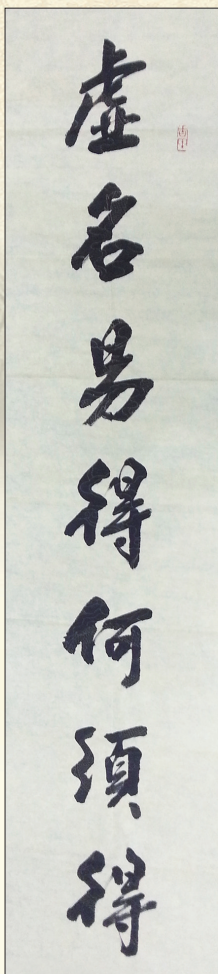 虚名易得何須得